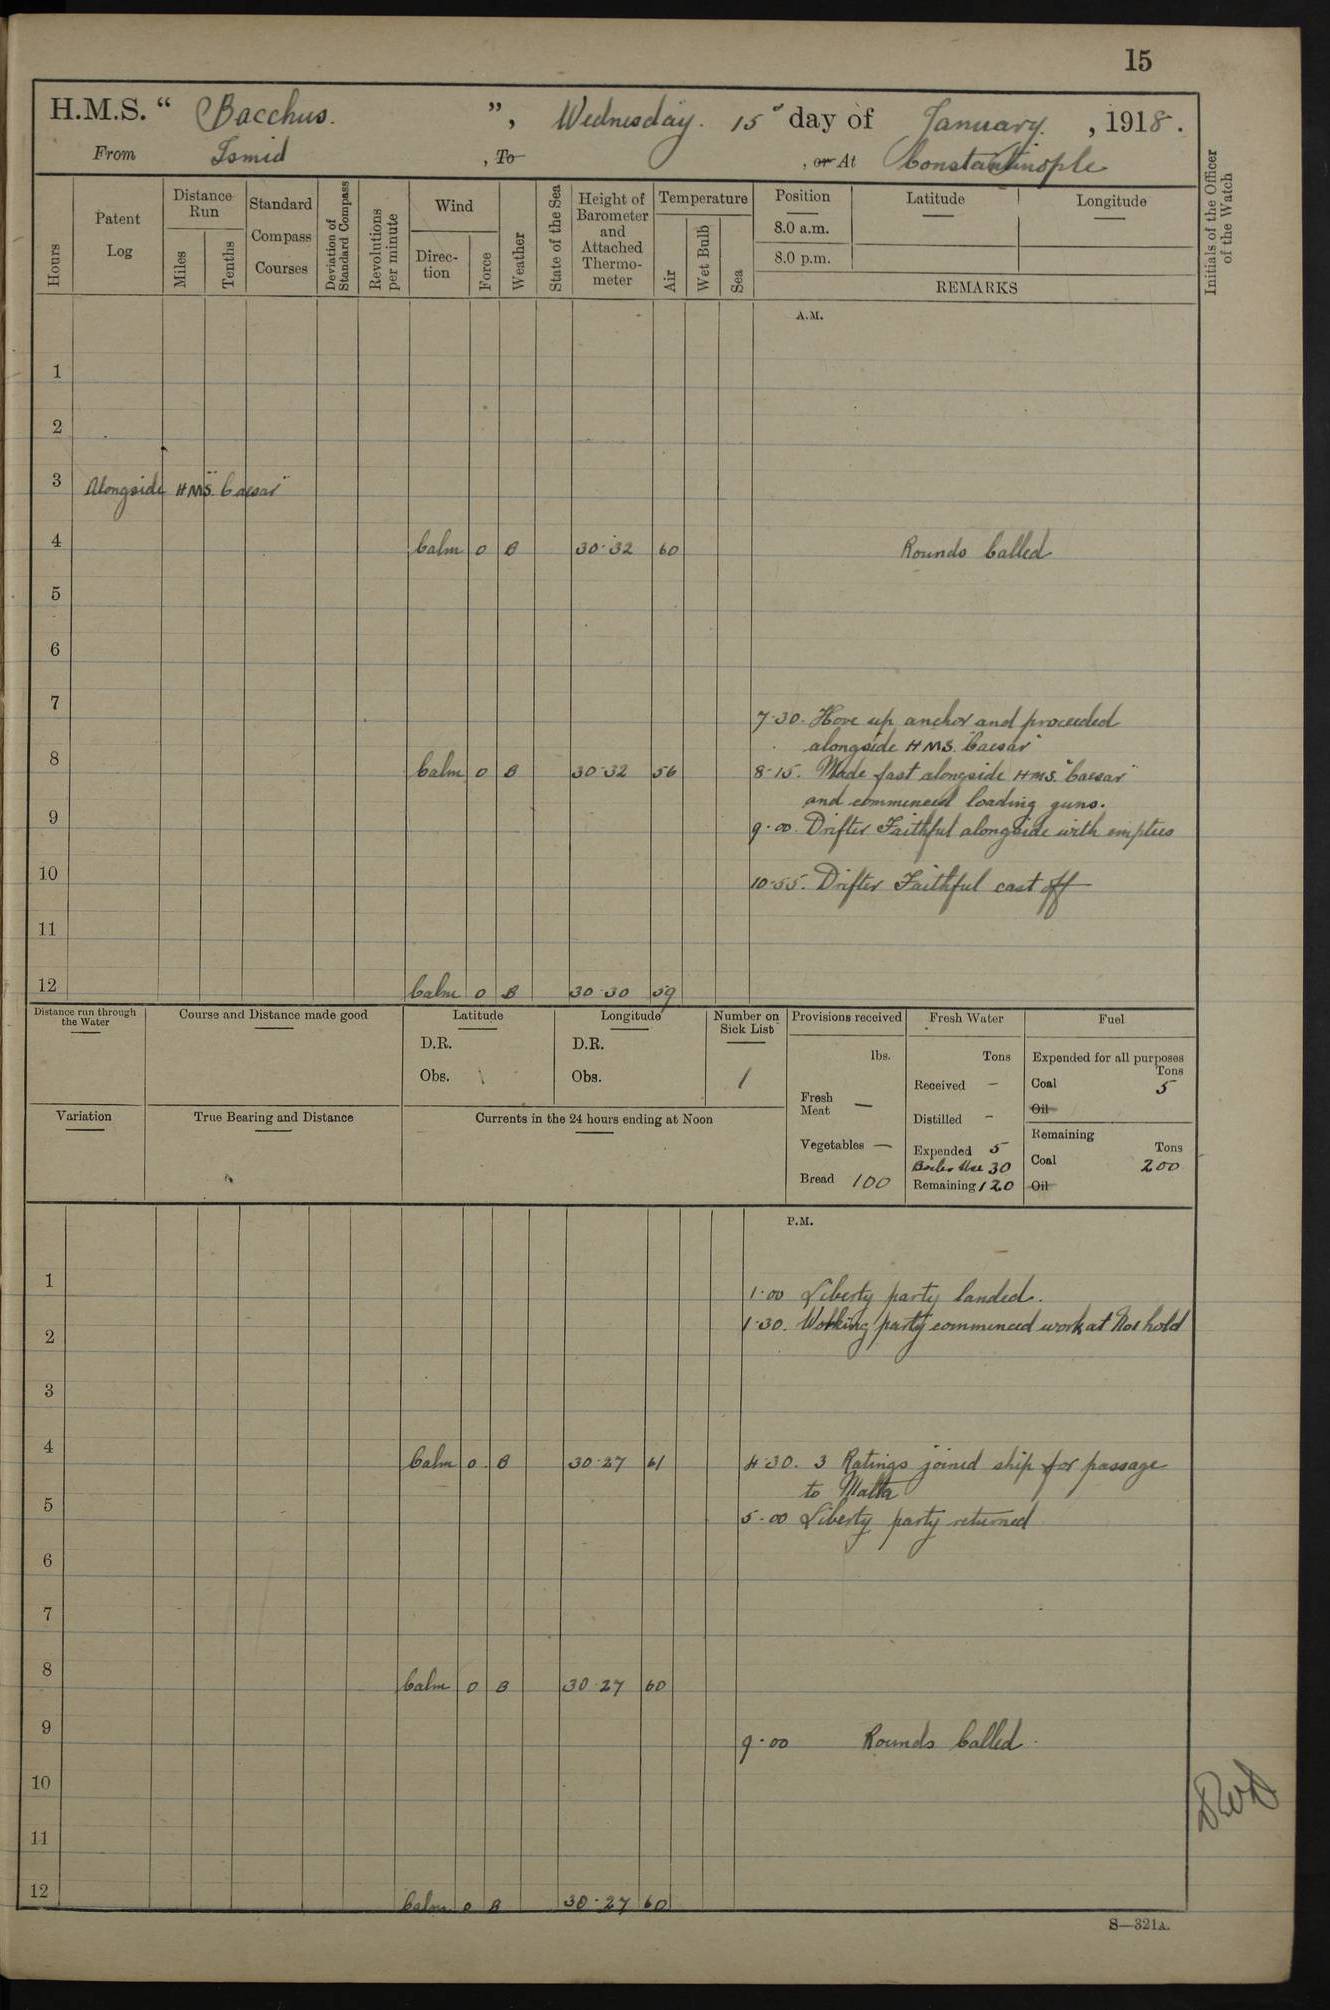 15
H.M.S. “ Bacchus. ”, Wednesday. 15th day of January, 1918.
From Ismid , To , or At Constantinople
Hours
Patent Log
Distance Run
Miles
Tenths
Standard Compass Courses
Deviation of Standard Compass
Revolutions per minute
Wind
Direc-tion
Force
Weather
State of the Sea
Height of Barometer and Attached Thermo-meter
Temperature
Air
Wet Bulb
Sea
Position
8.0 a.m.
8.0 p.m.
Latitude
Longitude
REMARKS
Initials of the Officer of the Watch
A.M.
1
2
3 Alongside HMS "Caesar"
4 Calm 0 B 30·32 60 Rounds Called
5
6
7
7·30. Hove up anchor and proceeded
alongside HMS. "Caesar"
8 Calm 0 B 30·32 56 8·15. Made fast alongside HMS. "Caesar"
and commenced loading guns.
9 9·00. Drifter Faithful alongside with empties
10 10·55. Drifter Faithful cast off
11
12 Calm 0 B 30·30 59
Distance run through the Water
Course and Distance made good
Latitude
D.R.
Obs.
Longitude
D.R.
Obs.
Number on Sick List
1
Variation
True Bearing and Distance
Currents in the 24 hours ending at Noon
Provisions received
lbs.
Fresh Meat —
Vegetables —
Bread 100
Fresh Water
Tons
Received —
Distilled —
Expended 5
Boiler Use 30
Remaining 120
Fuel
Expended for all purposes
Tons
Coal 5
Oil
Remaining
Tons
Coal 200
Oil
P.M.
1 1·00 Liberty party landed.
1·30. Working party commenced work at No1 hold
2
3
4 Calm 0 B 30·27 61 4·30. 3 Ratings joined ship for passage
to Malta
5 5·00 Liberty party returned
6
7
8 Calm 0 B 30·27 60
9 9·00 Rounds Called.
10
11
12 Calm 0 B 30·27 60
S—321A.